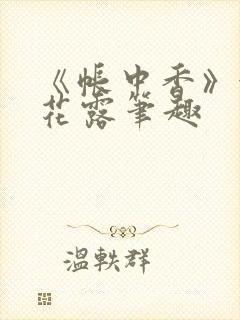 《帐中香》
花露笔趣
温轶群